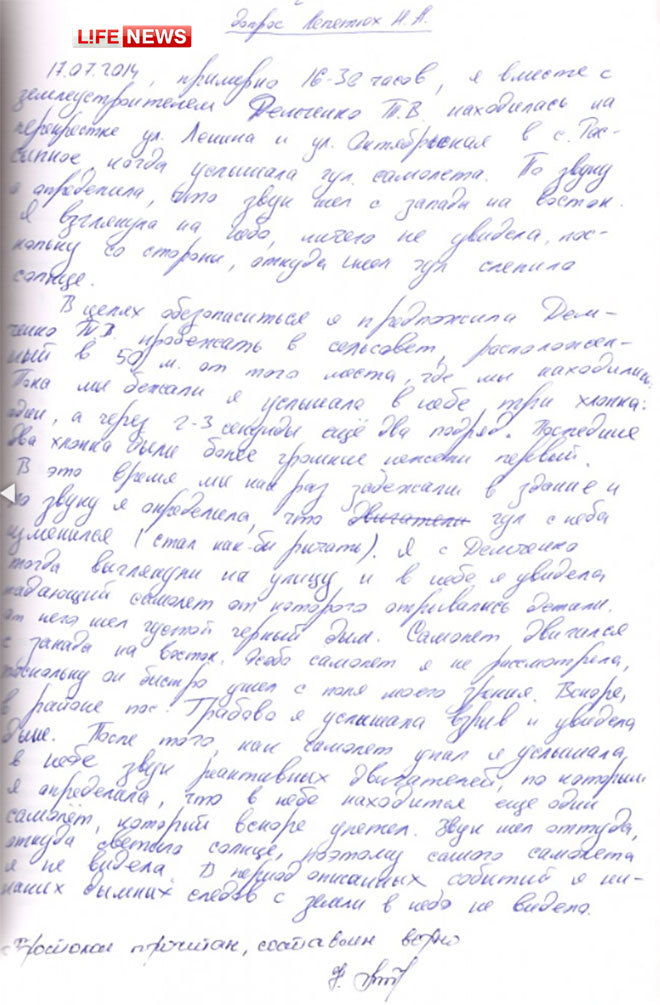 LIFE NEWS
допрос Лепетюх Н.А.
17.07.2014, примерно 16-30 часов, я вместе с
землеустроителем Демченко Т.В. находилась на
перекрестке ул. Ленина и ул. Октябрьская в с. Рас-
сыпное, когда услышала гул самолета. По звуку
я определила, что звук шел с запада на восток.
Я взглянула на небо, ничего не увидела, пос-
кольку со стороны, откуда шел гул слепило
солнце.
В целях обезопаситься я предложила Дем-
ченко Т.В. пробежать в сельсовет, расположен-
ный в 50 м. от того места, где мы находились.
Пока мы бежали я услышала в небе три хлопка:
один, а через 2-3 секунды ещё два подряд. Последние
два хлопка были более громкие нежели первый.
В это время мы как раз забежали в здание и
по звуку я определила, что двигатели гул с неба
изменился (стал как-бы рычать). Я с Демченко
тогда выглянули на улицу и в небе я увидела
падающий самолет от которого отрывались детали.
от него шел густой черный дым. Самолет двигался
с запада на восток. Особо самолет я не рассмотрела,
поскольку он быстро ушел с поля моего зрения. Вскоре,
в районе пос. Грабово я услышала взрыв и увидела
дым. После того, как самолет упал я услышала
в небе звук реактивных двигателей, по которым
я определила, что в небе находится еще один
самолёт, который вскоре улетел. Звук шел оттуда,
откуда светило солнце, поэтому самого самолета
я не видела. В период описанных событий я ни-
каких дымных следов с земли в небо не видела.
Протокол прочитан, составлен верно